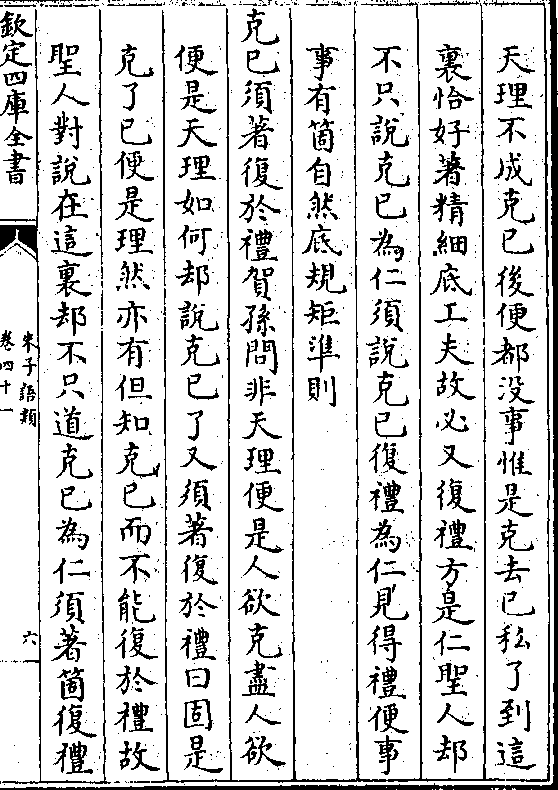 天理不成克已後便都没事惟是克去已私了到這
裏恰好著精細底工夫故必又復禮方是仁聖人却
不只說克已為仁須說克已復禮為仁見得禮便事
事有箇自然底規矩準則
克已須著復於禮賀孫問非天理便是人欲克盡人欲
便是天理如何却說克已了又須著復於禮曰固是
克了已便是理然亦有但知克已而不能復於禮故
聖人對說在這裏却不只道克已為仁須著箇復禮
欽定四庫全書
朱子語類
卷四十一
六